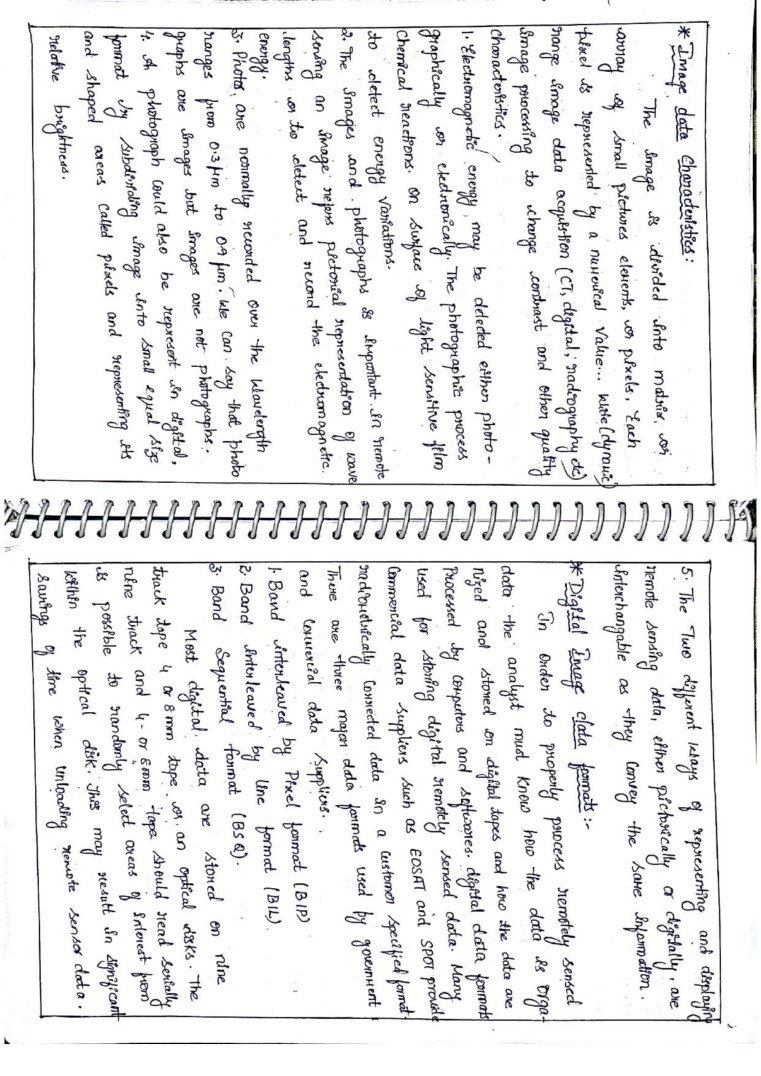 * Image data Characteristics:
The image is divided into matrix, or
array of small pictures elements, or pixels. Each
pixel is represented by a numerical value... wide (dynamic)
range image data acquisition (CT, digital, radiography etc)
image processing to change contrast and other quality
characteristics.
1. Electromagnetic energy may be detected either photo-
graphically or electronically. The photographic process
chemical reactions on surface of light sensitive film
to detect energy variations.
2. The images and photographs is important in remote
sensing an image refers pictorial representation of wave
lengths or to detect and record the electromagnetic
energy.
3. Photos, are normally recorded over the wavelength
ranges from 0.3 µm to 0.9 µm. We can say that photo
graphs are images but images are not photographs.
4. A photograph could also be represent in digital,
format by subdividing image into small equal size
and shaped areas called pixels and representing its
relative brightness.
5. The Two different ways of representing and displaying
remote sensing data, either pictorically or digitally, are
interchangable as they convey the same information.
* Digital Image data formats :-
In order to properly process remotely sensed
data the analyst must know how the data is orga-
nized and stored on digital tapes and how the data are
processed by computers and softwares. digital data formats
used for storing digital remotely sensed data. Many
commercial data suppliers such as EOSAT and SPOT provide
radiometrically corrected data in a customer specified format.
There are three major data formats used by government
and commercial data suppliers.
1. Band interleaved by Pixel format (BIP)
2. Band interleaved by line format (BIL)
3. Band Sequential format (BSQ).
Most digital data are stored on nine
track tape 4 or 8 mm tape or an optical disks. The
nine track and 4- or 8mm tape should read serially
is possible to randomly select areas of interest from
within the optical disk. This may result in significant
savings of time when unloading remote sensor data.